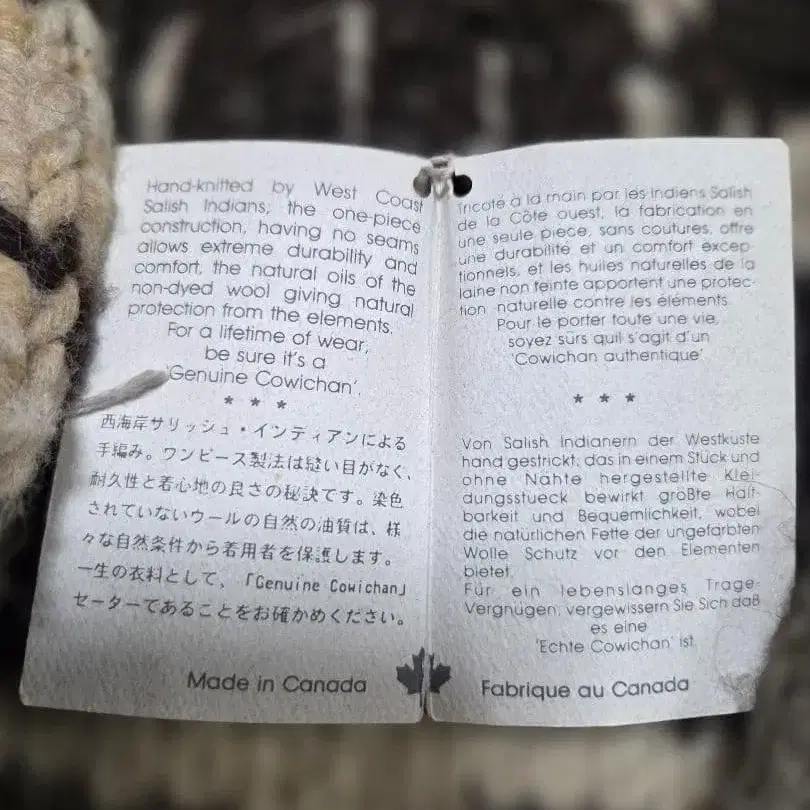 Hand-knitted by West Coast
Salish Indians; the one-piece
construction, having no seams
allows extreme durability and
comfort, the natural oils of the
non-dyed wool giving natural
protection from the elements.
For a lifetime of wear,
be sure it's a
'Genuine Cowichan'.
* * *
西海岸サリッシュ・インディアンによる
手編み。ワンピース製法は縫い目がなく、
耐久性と着心地の良さの秘訣です。染色
されていないウールの自然の油質は、様
々な自然条件から着用者を保護します。
一生の衣料として、「Genuine Cowichan」
セーターであることをお確かめください。
Made in Canada
Tricoté à la main par les Indiens Salish
de la Côte ouest, la fabrication en
une seule piece, sans coutures, offre
une durabilité et un comfort excep-
tionnels, et les huiles naturelles de la
laine non teinte apportent une protec-
tion naturelle contre les éléments.
Pour le porter toute une vie,
soyez sûrs quil s'agit d'un
'Cowichan authentique'.
* * *
Von Salish Indianern der Westkuste
hand gestrickt; das in einem Stück und
ohne Nähte hergestellte Klei-
dungsstueck bewirkt größte Halt-
barkeit und Bequemlichkeit, wobei
die natürlichen Fette der ungefarbten
Wolle Schutz vor den Elementen
bietet.
Für ein lebenslanges Trage-
Vergnügen, vergewissern Sie Sich daß
es eine
'Echte Cowichan' ist.
Fabrique au Canada